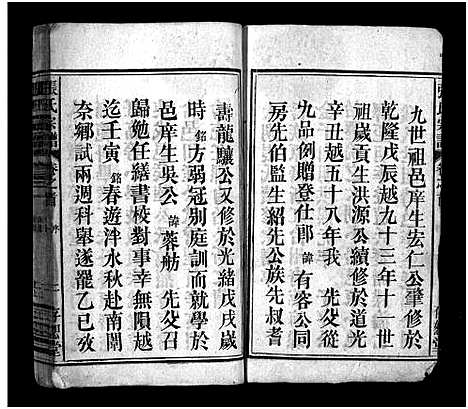 九世祖邑庠生宏仁公肇修於
乾隆戊辰越九十三年十一世
祖歲貢生洪源公續修於道光
辛丑越五十八年我 先父從
九品例贈登仕郎 諱 有容公同
房先伯監生紹先公族先叔耆
壽龍驤公又修於光緒戊戌歲
時 銘 方弱冠別庭訓而就學於
邑庠生吳公 諱 蓉舫 先父召
歸勉任繕書校對事幸無隕越
迄壬寅 銘 春遊泮水秋赴南闈
奈鄉試兩週科舉遂罷乙巳孜
張氏宗譜